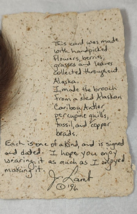 This card was made
with handpicked
flowers, berries,
grasses and leaves
collected throughout
Alaska.
I made the brooch
from a shed Alaskan
Caribou Antler,
porcupine quills,
fossil, and copper
beads.
Each is one of a kind, and is signed
and dated. I hope you enjoy
wearing it as much as I enjoyed
making it.
© 96